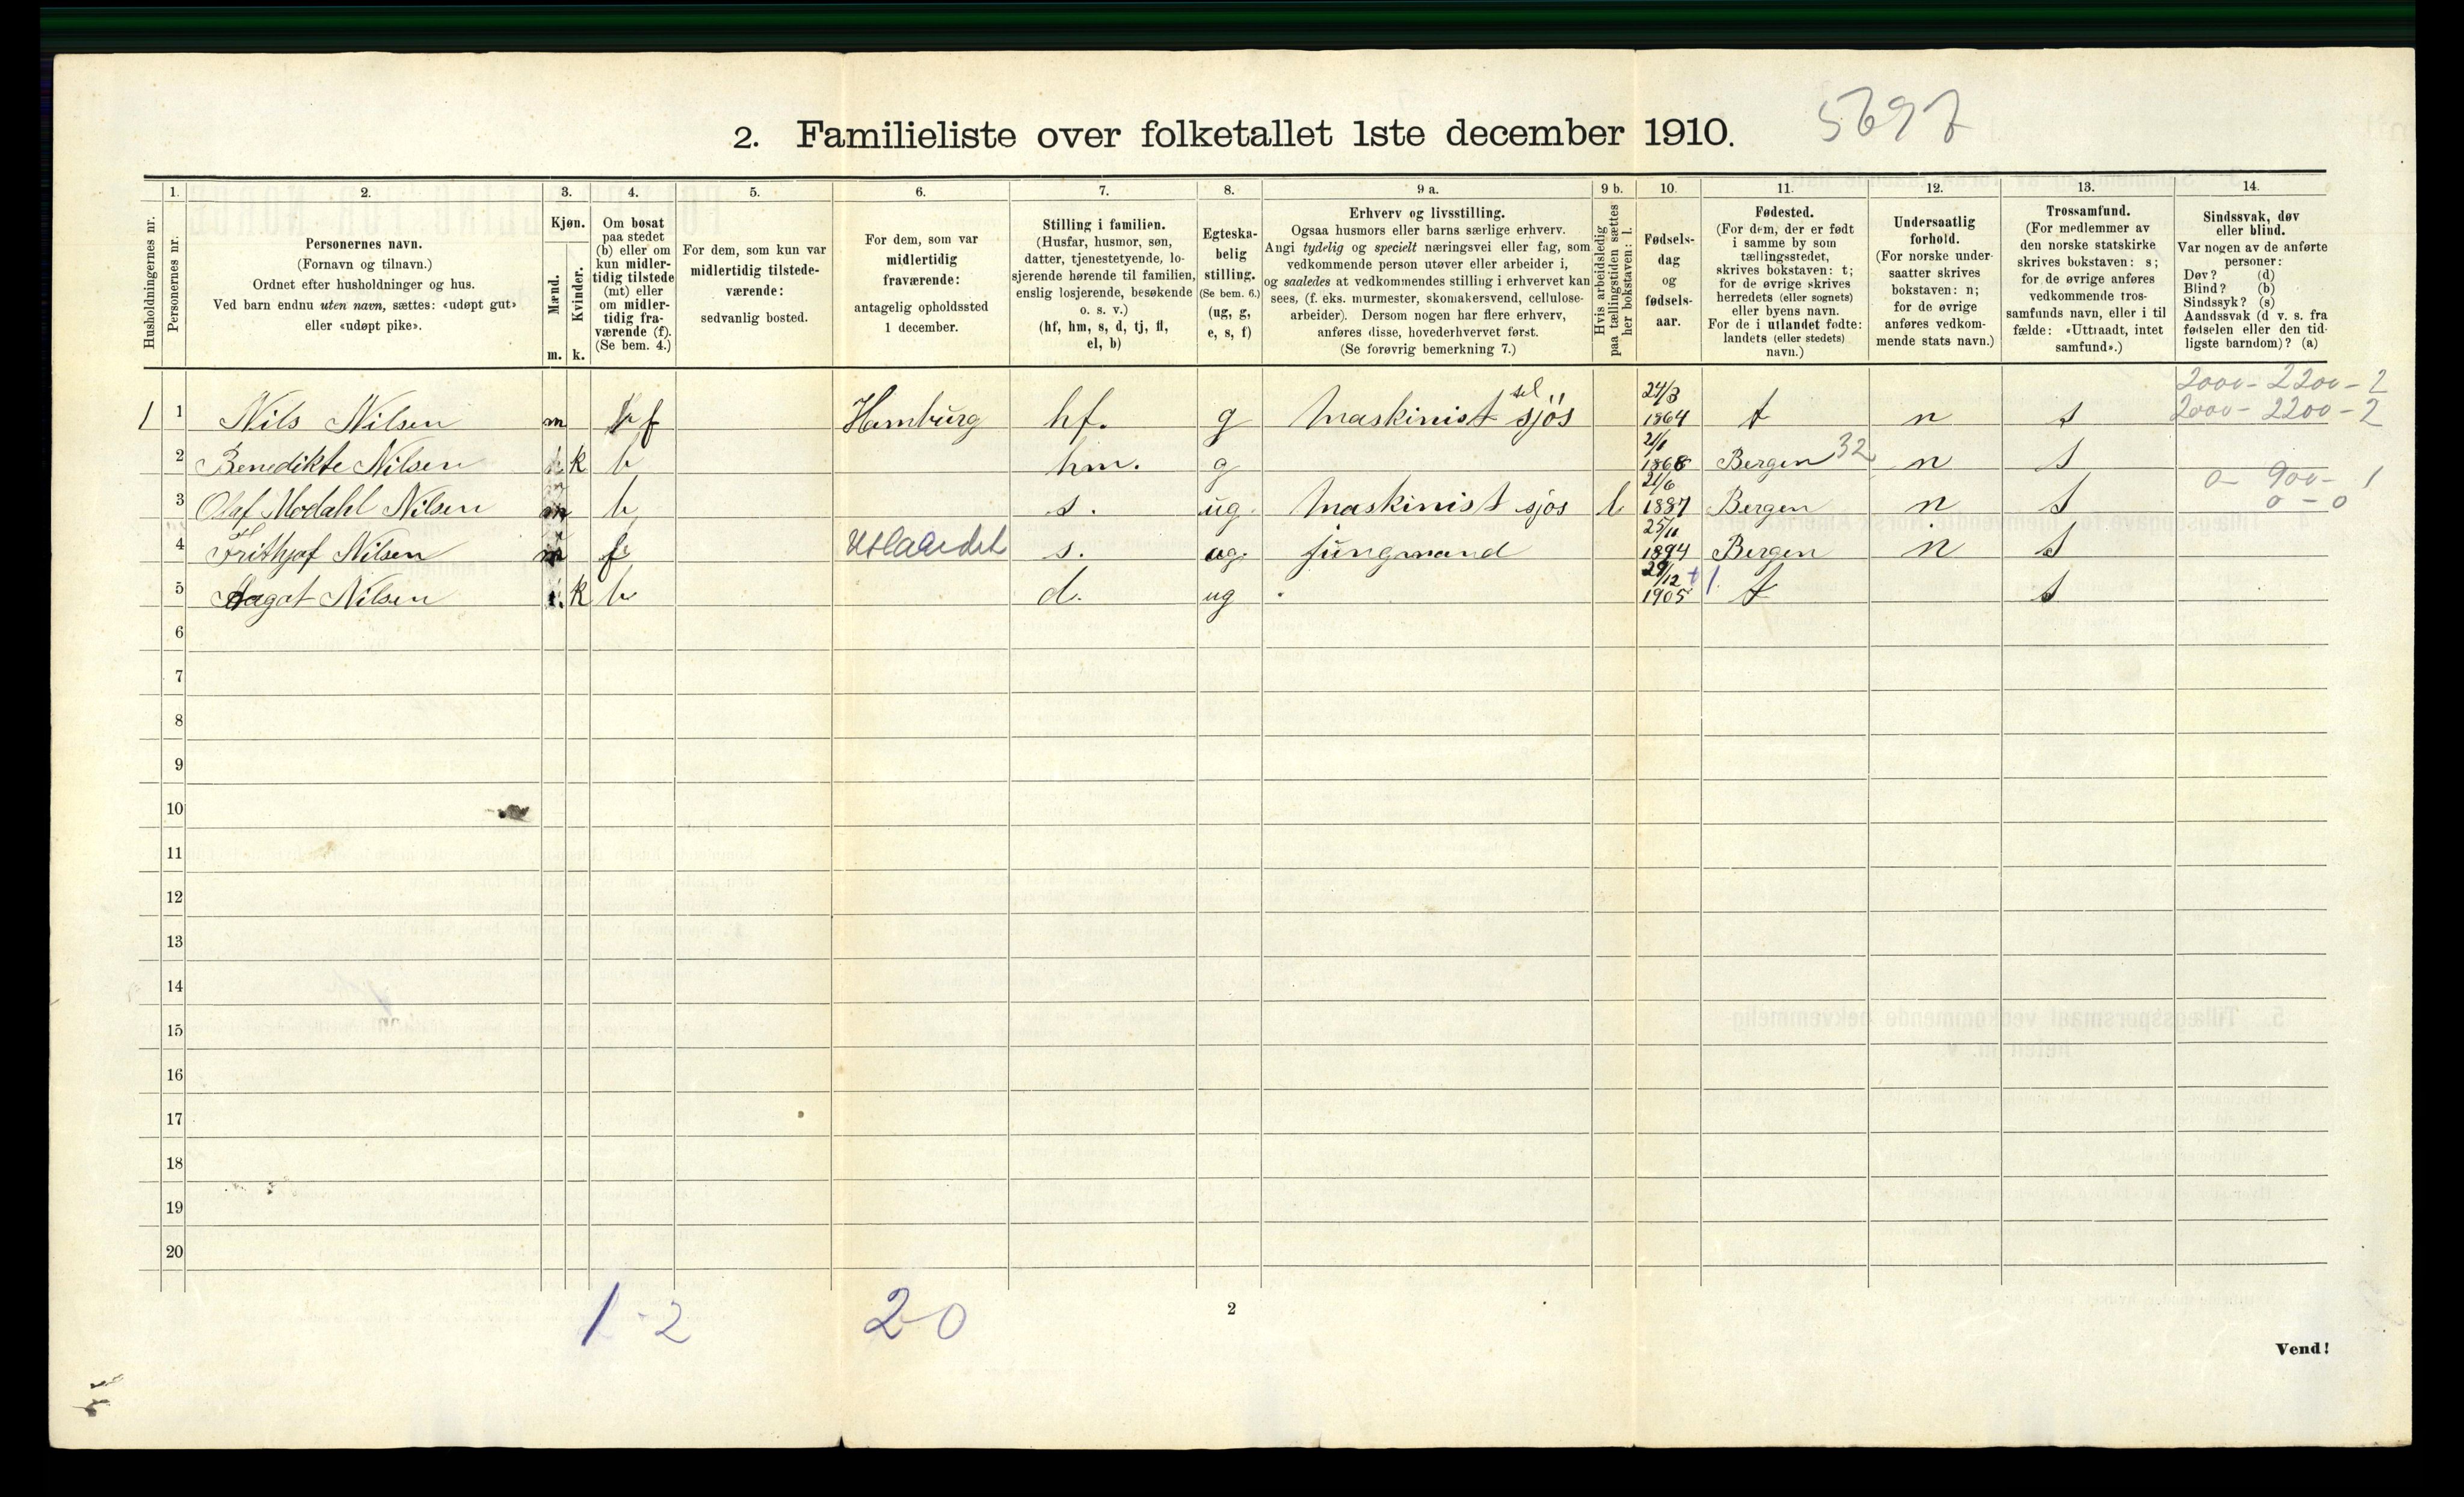 2. Familieliste over folketallet 1ste december 1910. 5697
1. 2. 3. 4. 5. 6. 7. 8. 9 a. 9 b. 10. 11. 12. 13. 14.
Husholdningernes nr.
Personernes nr.
Personernes navn.
(Fornavn og tilnavn.)
Ordnet efter husholdninger og hus.
Ved barn endnu uten navn, sættes: «udøpt gut»
eller «udøpt pike».
Kjøn.
Mænd.
m.
Kvinder.
k.
Om bosat
paa stedet
(b) eller om
kun midler-
tidig tilstede
(mt) eller
om midler-
tidig fra-
værende (f).
(Se bem. 4.)
For dem, som kun var
midlertidig tilstede-
værende:
sedvanlig bosted.
For dem, som var
midlertidig
fraværende:
antagelig opholdssted
1 december.
Stilling i familien.
(Husfar, husmor, søn,
datter, tjenestetyende, lo-
sjerende hørende til familien,
enslig losjerende, besøkende
o. s. v.)
(hf, hm, s, d, tj, fl,
el, b)
Egteska-
belig
stilling.
(Se bem. 6.)
(ug, g,
e, s, f)
Erhverv og livsstilling.
Ogsaa husmors eller barns særlige erhverv.
Angi tydelig og specielt næringsvei eller fag, som
vedkommende person utøver eller arbeider i,
og saaledes at vedkommendes stilling i erhvervet kan
sees, (f. eks. murmester, skomakersvend, cellulose-
arbeider). Dersom nogen har flere erhverv,
anføres disse, hovederhvervet først.
(Se forøvrig bemerkning 7.)
Hvis arbeidsledig
paa tællingstiden sættes
her bokstaven: l.
Fødsels-
dag
og
fødsels-
aar.
Fødested.
(For dem, der er født
i samme by som
tællingsstedet,
skrives bokstaven: t;
for de øvrige skrives
herredets (eller sognets)
eller byens navn.
For de i utlandet fødte:
landets (eller stedets)
navn.)
Undersaatlig
forhold.
(For norske under-
saatter skrives
bokstaven: n;
for de øvrige
anføres vedkom-
mende stats navn.)
Trossamfund.
(For medlemmer av
den norske statskirke
skrives bokstaven: s;
for de øvrige anføres
vedkommende tros-
samfunds navn, eller i til
fælde: «Uttraadt, intet
samfund».)
Sindssvak, døv
eller blind.
Var nogen av de anførte
personer:
Døv? (d)
Blind? (b)
Sindssyk? (s)
Aandssvak (d v. s. fra
fødselen eller den tid-
ligste barndom)? (a)
2000 - 2200 - 2
1 1 Nils Nilsen m f Hamburg hf. g Maskinist sjös 24/3 1864 t n s 2000 - 2200 - 2
2 Benedikte Nilsen k b hm. g 21/1 1868 Bergen 32 n s
3 Olaf Modahl Nilsen m b s. ug. Maskinist sjös l 21/6 1887 Bergen n s 0 - 900 - 1
0 - 0
4 Frithjof Nilsen m f Utlandet s. ug. jungmand 25/11 1894 Bergen n s
5 Aagot Nilsen k b d. ug 29/12 1905 t s
6
7
8
9
10
11
12
13
14
15
16
17
18
19
20
1 - 2 2-0
2
Vend!